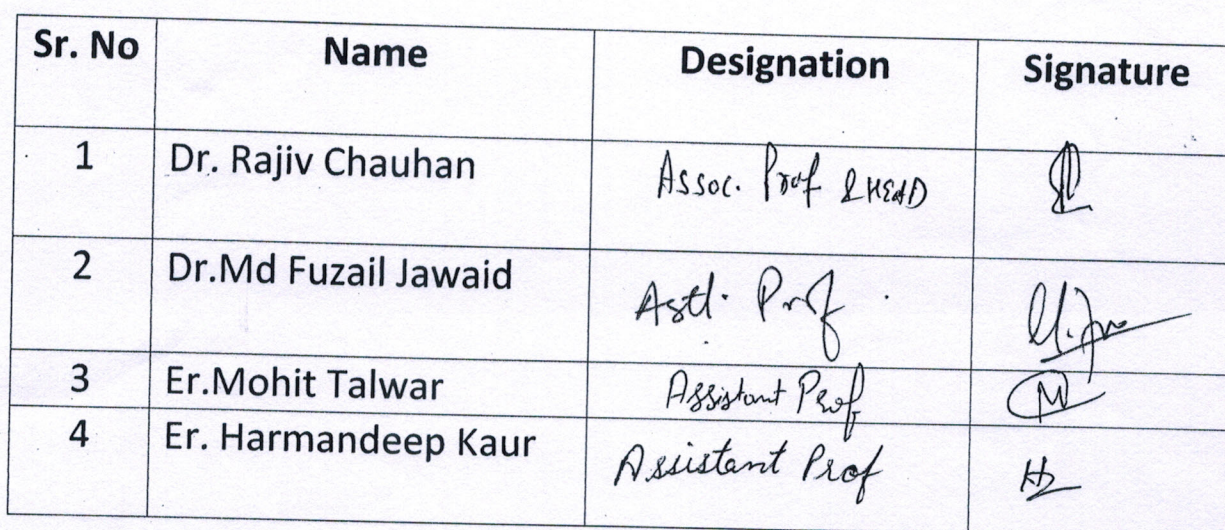 Sr. No Name Designation Signature
1 Dr. Rajiv Chauhan Assoc. Prof & HEAD
2 Dr.Md Fuzail Jawaid Astt. Prof
3 Er.Mohit Talwar Assistant Prof
4 Er. Harmandeep Kaur Assistant Prof